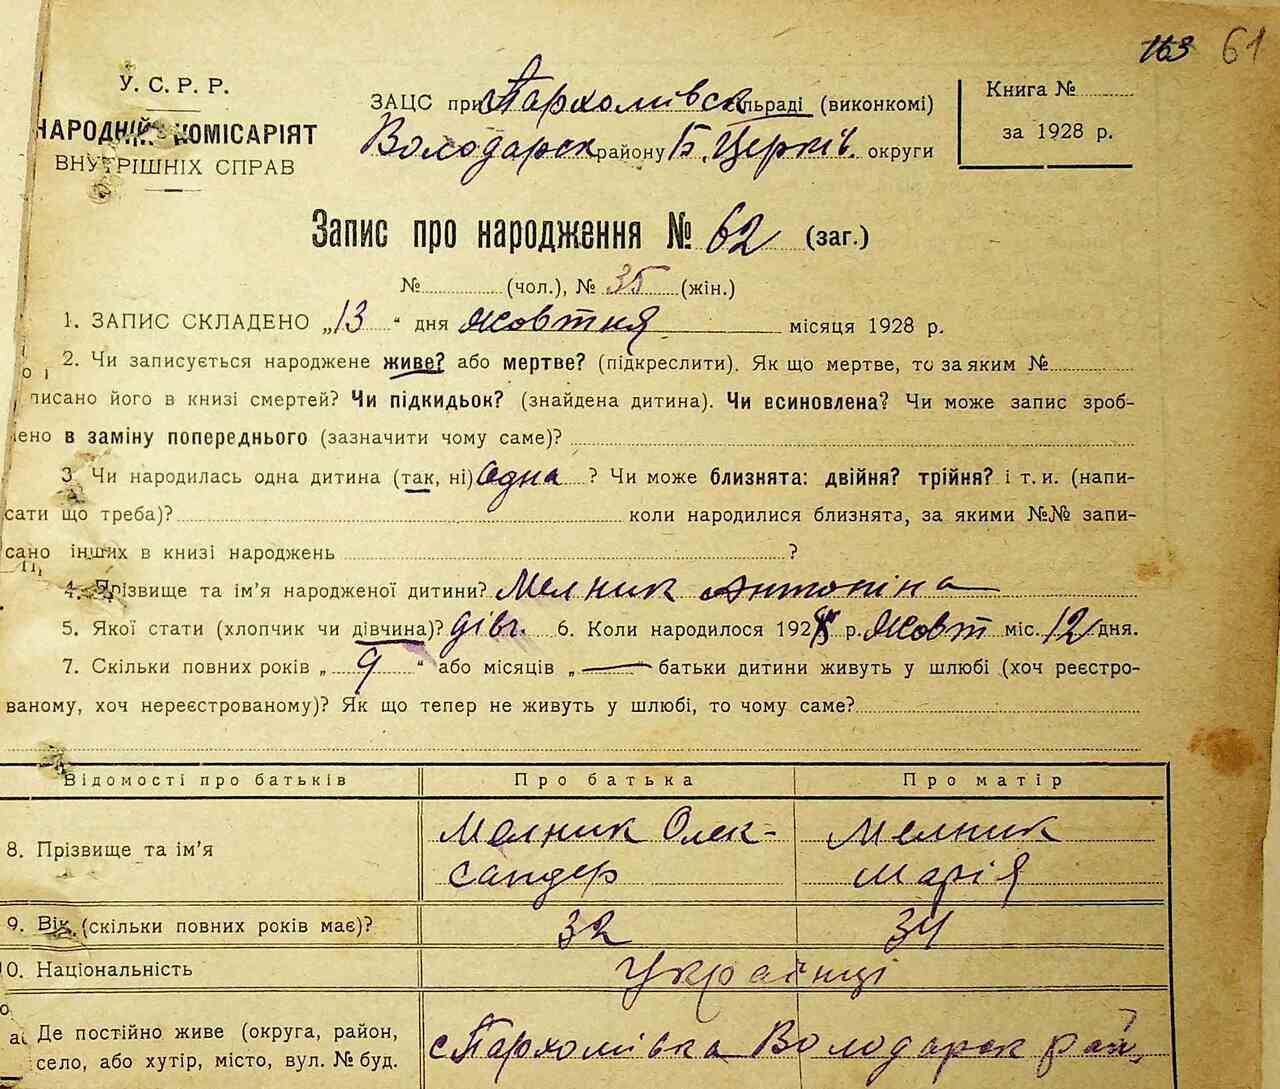 163 61
У. С. Р. Р.
НАРОДНІЙ КОМІСАРІЯТ
ВНУТРІШНІХ СПРАВ
ЗАЦС при Пархомівськ сільраді (виконкомі)
Володарск району Б. Церків. округи
Книга №
за 1928 р.
Запис про народження № 62 (заг.)
№ (чол.), № 35 (жін.)
1. ЗАПИС СКЛАДЕНО „13“ дня Жовтня місяця 1928 р.
2. Чи записується народжене живе? або мертве? (підкреслити). Як що мертве, то за яким №
писано його в книзі смертей? Чи підкидьок? (знайдена дитина). Чи всиновлена? Чи може запис зроб-
лено в заміну попереднього (зазначити чому саме)?
3. Чи народилась одна дитина (так, ні) Одна ? Чи може близнята: двійня? трійня? і т. и. (напи-
сати що треба)? коли народилися близнята, за якими №№ запи-
сано інших в книзі народжень ?
4. Прізвище та ім’я народженої дитини? Мелник Антоніна
5. Якої стати (хлопчик чи дівчина)? дівч. 6. Коли народилося 1928 р. Жовт міс. 12 дня.
7. Скільки повних років „ 9 “ або місяців „ — “ батьки дитини живуть у шлюбі (хоч реєстро-
ваному, хоч нереєстрованому)? Як що тепер не живуть у шлюбі, то чому саме?
Відомості про батьків Про батька Про матір
8. Прізвище та ім’я Мелник Олек-сандер Мелник Марія
9. Вік (скільки повних років має)? 32 34
10. Національність Українці
Де постійно живе (округа, район,
село, або хутір, місто, вул. № буд. с Пархомівка Володарск рай.